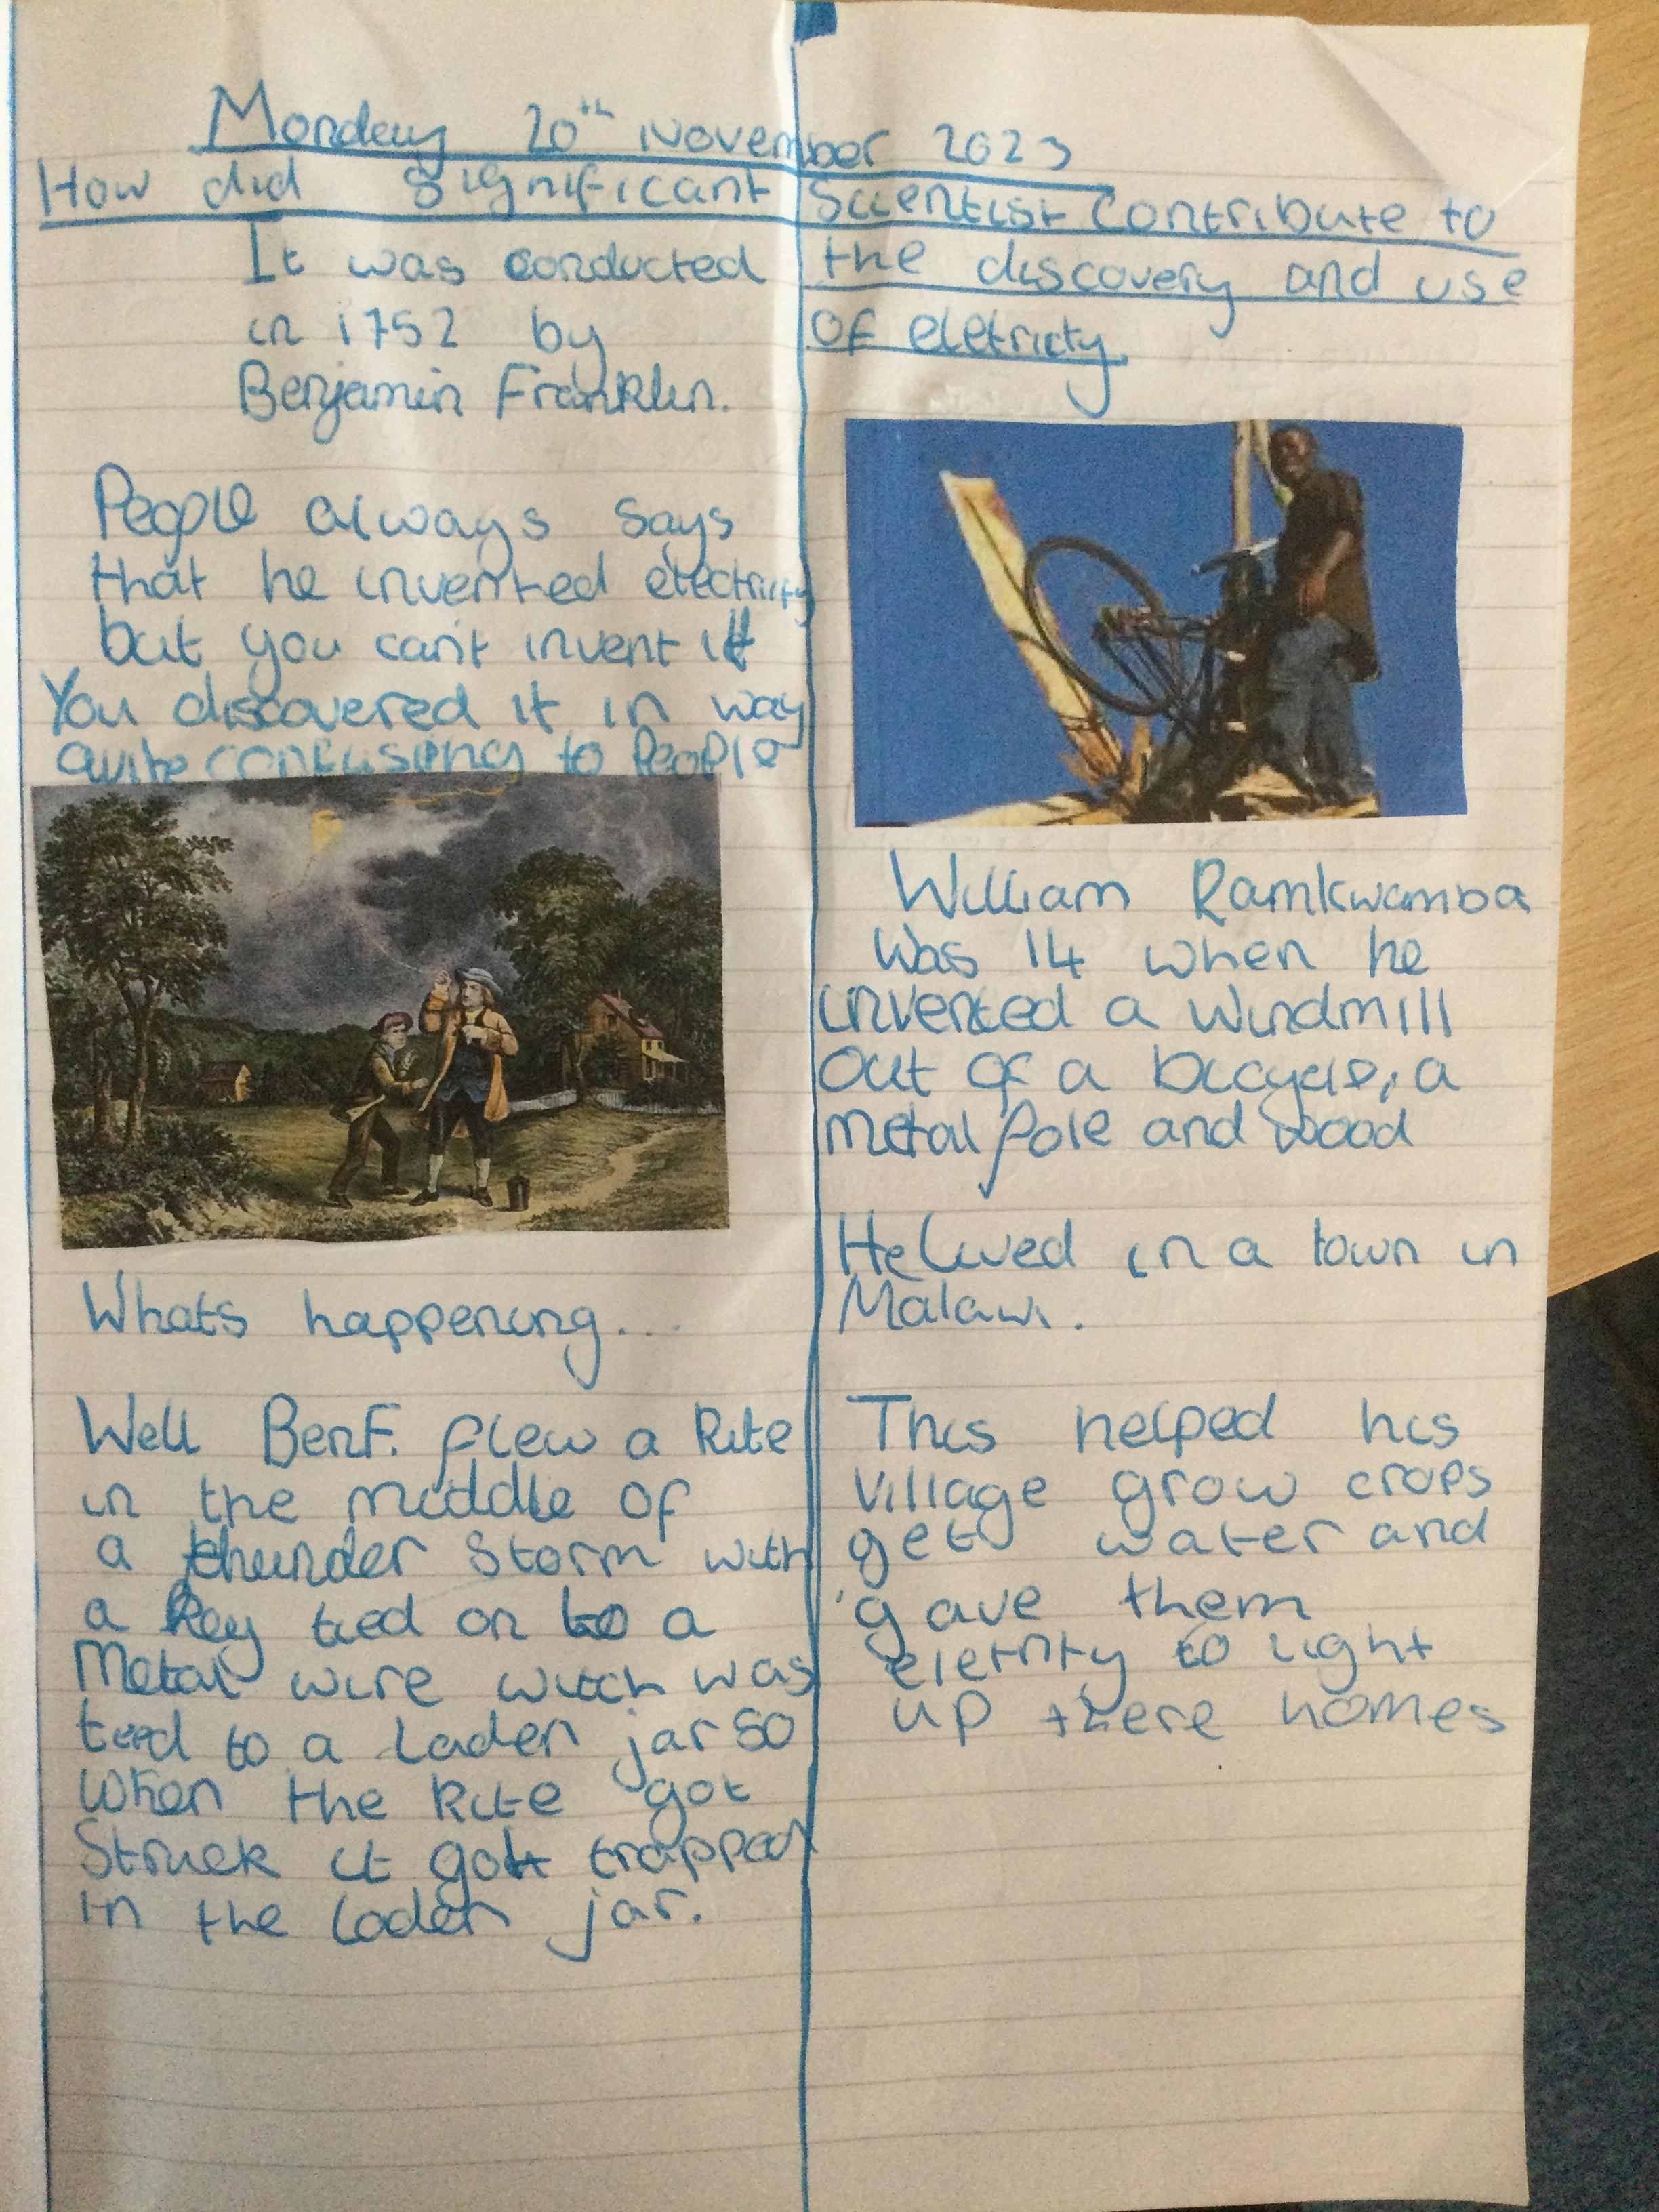 Monday 20th November 2023
How did significant Scientist Contribute to
the discovery and use
of eletricty
It was conducted
in 1752 by
Benjamin Franklin.
People always says
that he invented electricity
but you can't invent it
You discovered it in way
quite confusing to People
Whats happening...
Well BenF. flew a kite
in the middle of
a thunder storm with
a key tied on to a
Metal wire witch was
tied to a Laden jar so
when the kite got
Struck it got trapped
in the laden jar.
William Ramkwamba
was 14 when he
invented a windmill
out of a bicycle, a
metal pole and wood
He lived in a town in
Malawi.
This helped his
village grow crops
get water and
gave them
eletrity to light
up there homes